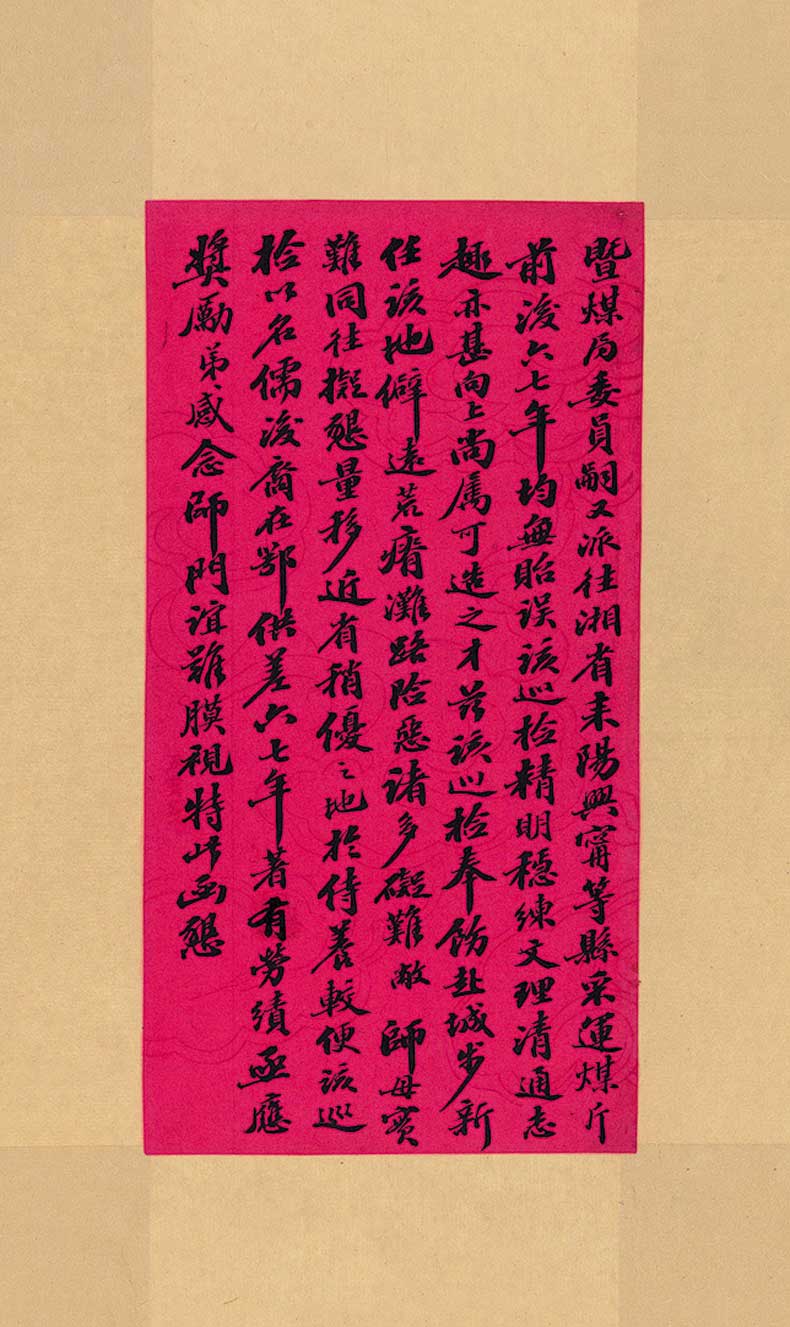 暨煤局委員嗣又派往湘省耒陽興甯等縣采運煤斤
前後六七年均無貽誤該巡檢精明穩練文理清通志
趣亦甚向上尚属可造之才茲該巡檢奉飭赴城步新
任該地僻遠苦瘠灘路險惡諸多礙難敝 師母實
難同往擬懇量移近省稍優之地於侍養較便該巡
檢以名儒後裔在鄂供差六七年著有勞績亟應
獎勵弟感念師門誼難膜視特此函懇